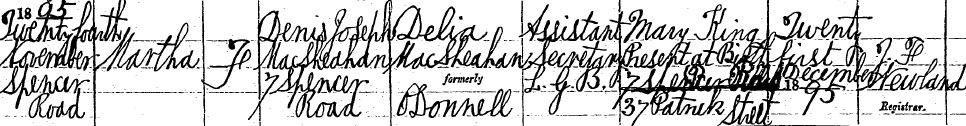 1895
Twenty fourth
November
Spencer
Road
Martha
F
Denis Joseph
MacSheahan
7 Spencer
Road
Delia
MacSheahan
formerly
O'Donnell
Assistant
Secretary
L. G. B.
Mary King
Present at Birth
7 Spencer Road
37 Patrick
Street
Twenty
first
December
1895
Newland
Registrar.